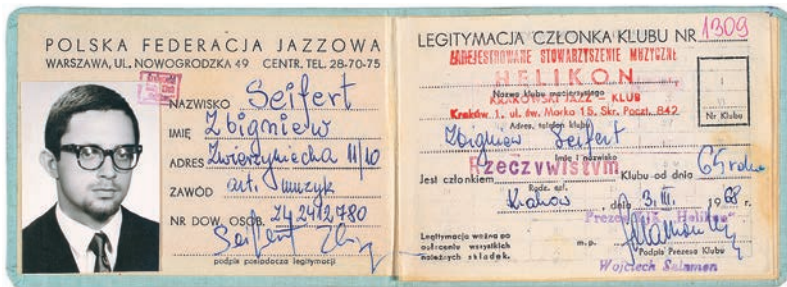 POLSKA FEDERACJA JAZZOWA
WARSZAWA, UL. NOWOGRODZKA 49 CENTR. TEL. 28-70-75
NAZWISKO Seifert
IMIĘ Zbigniew
ADRES Zwierzyniecka 11/10
ZAWÓD art. muzyk
NR DOW. OSOB. ZY 2412780
Seifert Zbig
podpis posiadacza legitymacji
LEGITYMACJA CZŁONKA KLUBU NR 1309
ZAREJESTROWANE STOWARZYSZENIE MUZYCZNE
HELIKON
Nazwa klubu macierzystego
KRAKOWSKI JAZZ - KLUB
Kraków 1, ul. św. Marka 15, Skr. Poczt. 842
Adres, telefon klubu
Nr Klubu
Zbigniew Seifert
Imię i nazwisko
Jest członkiem Rzeczywistym Klubu od dnia 65 roku
Rodz. czł.
Kraków, dnia 3. III. 1968 r.
Prezes Jk. "Helikon"
Legitymacja ważna po
opłaceniu wszystkich
należnych składek.
m.p.
Podpis Prezesa Klubu
Wojciech Salamon